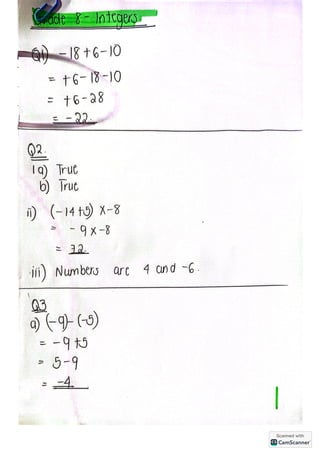 Grade 8 - Integers
Q1) -18+6-10
= +6-18-10
= +6-28
= -22.
Q2.
i a) True
b) True
ii) (-14+5) x-8
= -9 x-8
= 72.
iii) Numbers are 4 and -6.
Q3
a) (-9)-(-5)
= -9+5
= 5-9
= -4
1
Scanned with
CS CamScanner